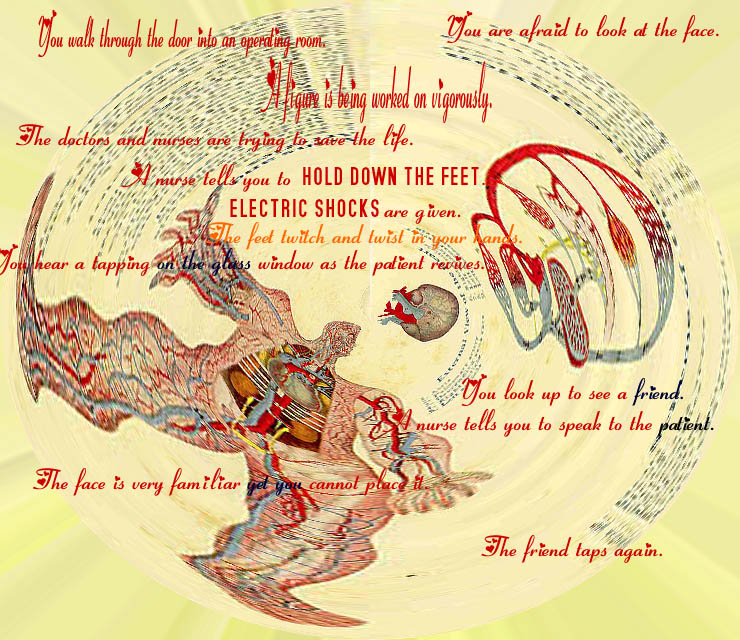 You walk through the door into an operating room.
You are afraid to look at the face.
A figure is being worked on vigorously.
The doctors and nurses are trying to save the life.
A nurse tells you to HOLD DOWN THE FEET.
ELECTRIC SHOCKS are given.
The feet twitch and twist in your hands.
You hear a tapping on the glass window as the patient revives.
You look up to see a friend.
A nurse tells you to speak to the patient.
The face is very familiar yet you cannot place it.
The friend taps again.